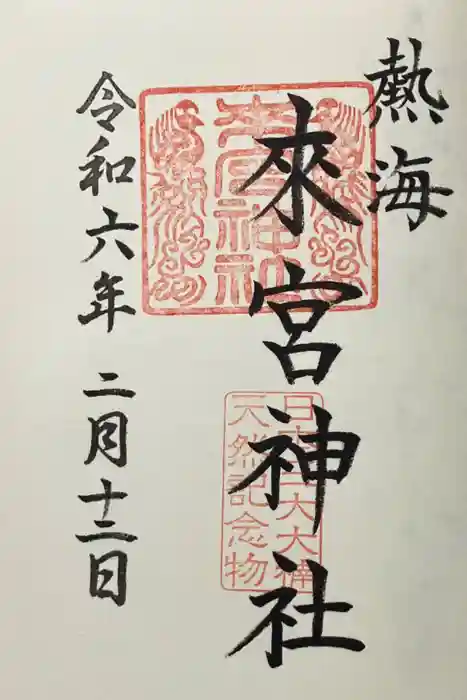 熱海
來宮神社
令和六年 二月十二日
來宮神社
日本三大大楠
天然記念物